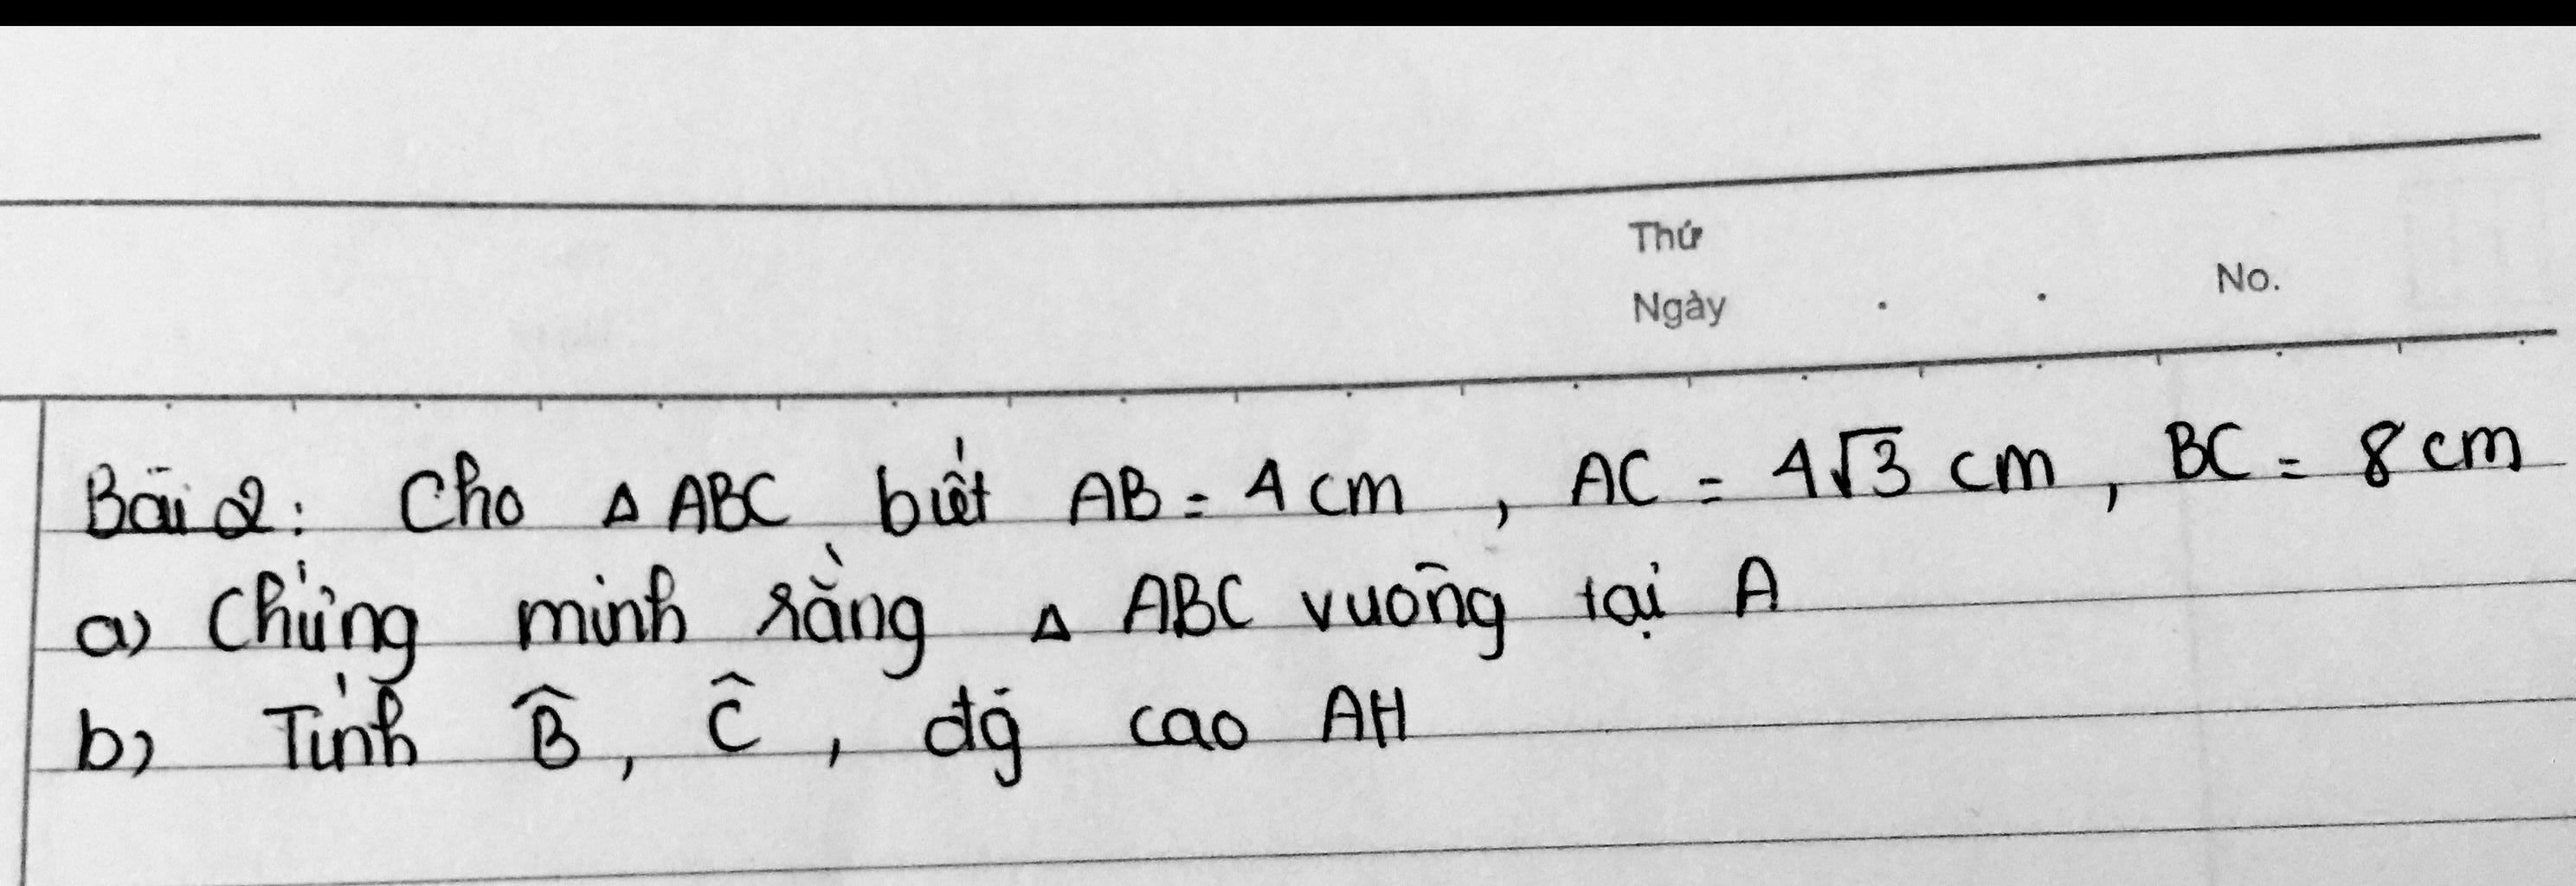 Thứ
Ngày . . No.
Bài 2: Cho Δ ABC biết AB = 4 cm , AC = 4√3 cm , BC = 8 cm
a) Chứng minh rằng Δ ABC vuông tại A
b) Tính B̂ , Ĉ , độ cao AH